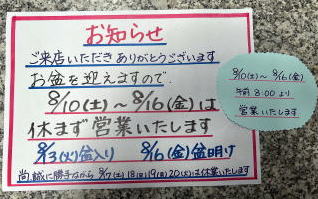 お知らせ
ご来店いただきありがとうございます
お盆を迎えますので
8/10(土)～8/16(金)は
休まず営業いたします
8/13(火)盆入り 8/16(金)盆明け
尚、誠に勝手ながら 8/17(土)18(日)19(月)20(火)は休業いたします
8/10(土)～8/16(金)
午前8:00より
営業いたします